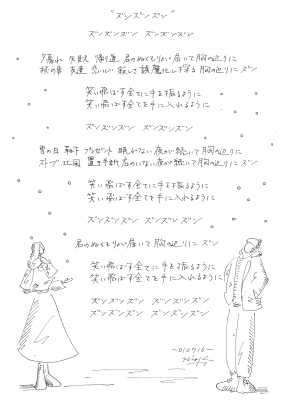 "ズンズンズン"
ズンズンズン ズンズンズン
夕暮れ 失敗 帰り道 君のぬくもりが届いて胸の辺りに ズン
秋の草 友達 恋しい 殺して 誤魔化し 探る 胸の辺りに ズン
笑い飛ばす全てに手を振るように
笑い飛ばす全てを手に入れるように
ズンズンズン ズンズンズン
雪の日 靴下 プレゼント 眠れない夜が続いて胸の辺りに ズン
ストーブ 北風 置き手紙 君のいない夜が続いて胸の辺りに ズン
笑い飛ばす全てに手を振るように
笑い飛ばす全てを手に入れるように
ズンズンズン ズンズンズン
君のぬくもりが届いて 胸の辺りに ズン
笑い飛ばす全てに手を振るように
笑い飛ばす全てを手に入れるように
ズンズンズン ズンズンズン
ズンズンズン ズンズンズン
~010716~